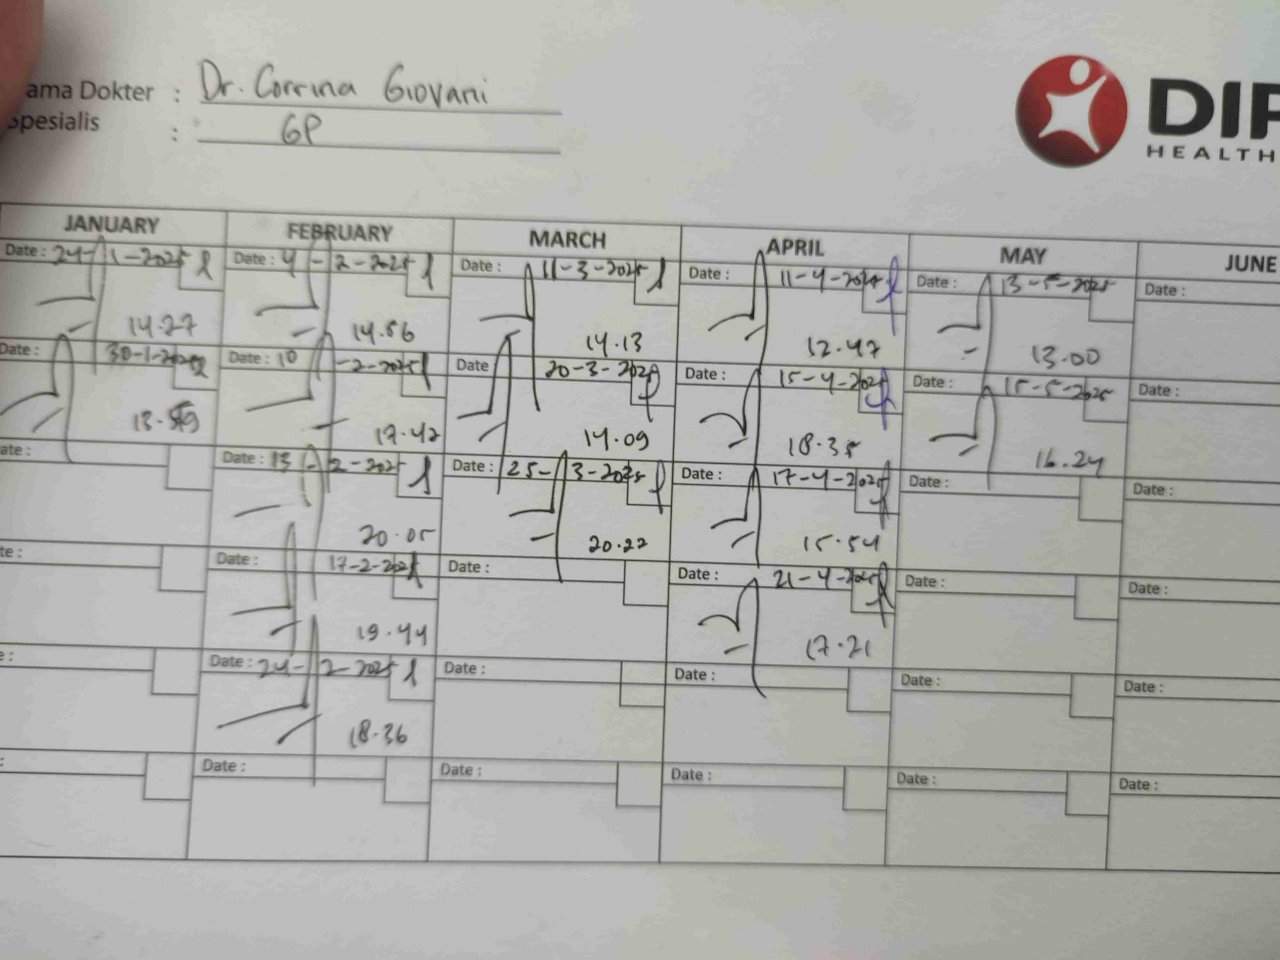 ama Dokter : Dr. Corrina Giovani
Spesialis : GP
DIP
HEALTH
JANUARY FEBRUARY MARCH APRIL MAY JUNE
Date : 24-1-2025 Date : 4-2-2025 Date : 11-3-2025 Date : 11-4-2025 Date : 13-5-2025 Date :
14.27 14.56 14.13 12.47 13.00
Date : 30-1-2025 Date : 10-2-2025 Date 20-3-2025 Date : 15-4-2025 Date : 15-5-2025 Date :
17.42 14.09 18.35 16.24
ate : Date : 13-2-2025 Date : 25-3-2025 Date : 17-4-2025 Date : Date :
20.05 20.22 15.54
te : Date : 17-2-2025 Date : Date : 21-4-2025 Date : Date :
19.44 17.21
e : Date : 24-2-2025 Date : Date : Date : Date :
18.36
: Date : Date : Date : Date : Date :